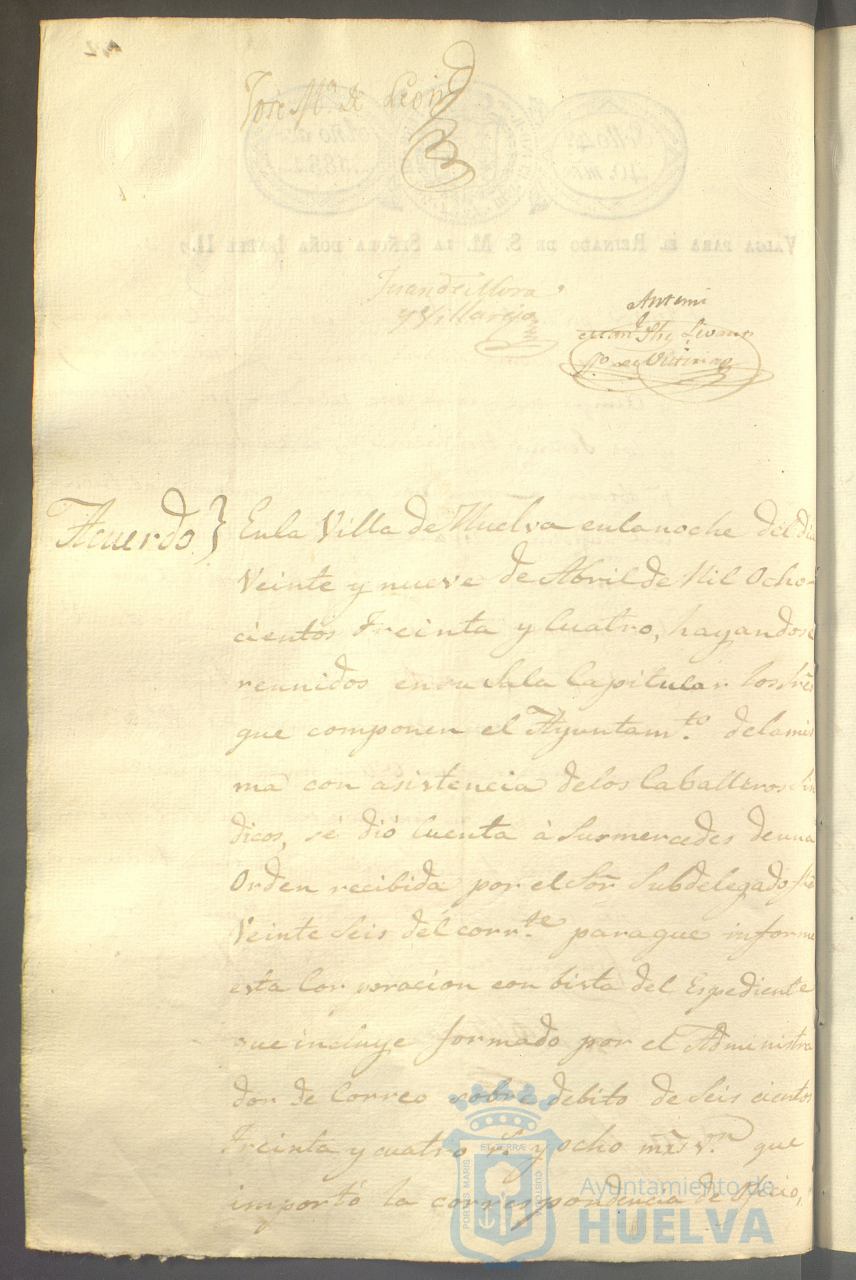 Jose Mª de Leon
Juan de Mora
y Villarejo
Antemi
Acuerdo } En la Villa de Huelva en la noche del dia
Veinte y nueve de Abril de Mil Ocho-
cientos Treinta y Cuatro, hayandose
reunidos en su Sala Capitular los Sres
que componen el Ayuntamto. de la mis
ma con asistencia de los Caballeros Sin
dicos, sé dió Cuenta à Sus mercedes de una
Orden recibida por el Sor Subdelegado
Veinte Seis del corrte. para que informe
esta Corporacion con bista del Espediente
que incluye formado por el Administra
dor de Correo sobre debito de Seis cientos
Treinta y cuatro rs. y ocho mrs vn. que
importó la correspondencia de Oficio,
PORTUS MARIS ET TERRÆ CUSTODIA
Ayuntamiento de
HUELVA